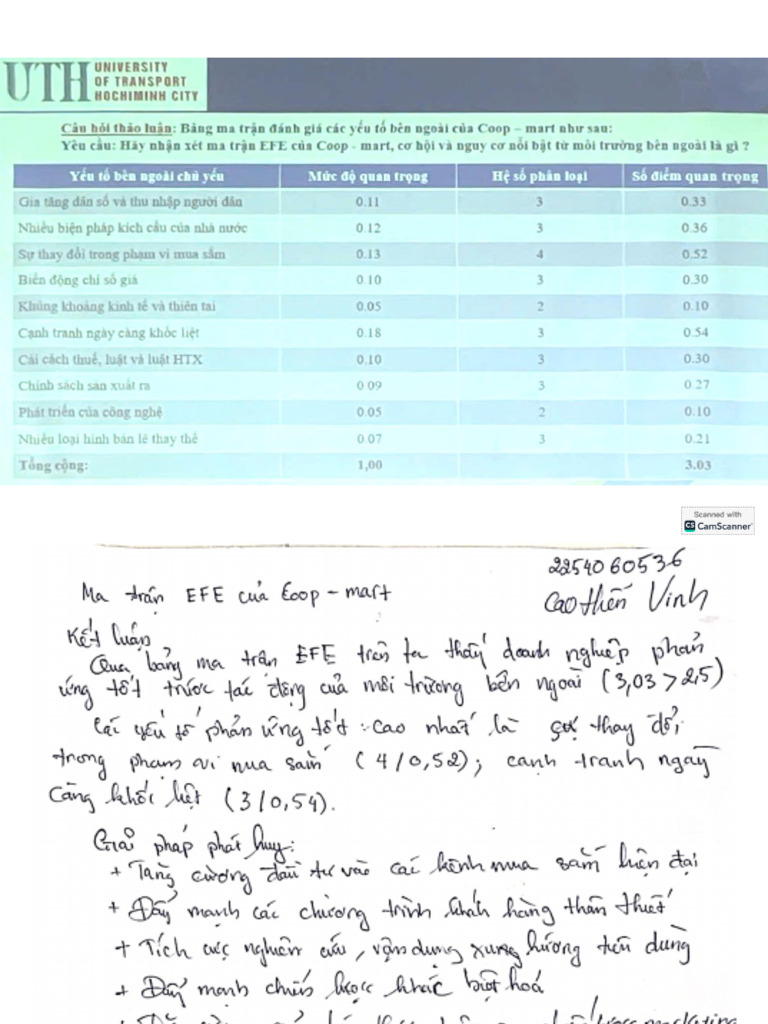 UTH UNIVERSITY
OF TRANSPORT
HOCHIMINH CITY
Câu hỏi thảo luận: Bảng ma trận đánh giá các yếu tố bên ngoài của Coop – mart như sau:
Yêu cầu: Hãy nhận xét ma trận EFE của Coop - mart, cơ hội và nguy cơ nổi bật từ môi trường bên ngoài là gì ?
Yếu tố bên ngoài chủ yếu Mức độ quan trọng Hệ số phân loại Số điểm quan trọng
Gia tăng dân số và thu nhập người dân 0.11 3 0.33
Nhiều biện pháp kích cầu của nhà nước 0.12 3 0.36
Sự thay đổi trong phạm vi mua sắm 0.13 4 0.52
Biến động chỉ số giá 0.10 3 0.30
Khủng khoảng kinh tế và thiên tai 0.05 2 0.10
Cạnh tranh ngày càng khốc liệt 0.18 3 0.54
Cải cách thuế, luật và luật HTX 0.10 3 0.30
Chính sách sản xuất ra 0 09 3 0.27
Phát triển của công nghệ 0.05 2 0.10
Nhiều loại hình bán lẻ thay thế 0 07 3 0.21
Tổng cộng: 1,00 3.03
Scanned with
CS CamScanner
2254060536
Ma trận EFE của Coop - mart Cao Thiên Vinh
Kết luận
Qua bảng ma trận EFE trên ta thấy doanh nghiệp phản
ứng tốt trước tác động của môi trường bên ngoài (3,03 > 2,5)
Các yếu tố phản ứng tốt : cao nhất là sự thay đổi
trong phạm vi mua sắm (4/0,52); cạnh tranh ngày
càng khốc liệt (3/0,54).
Giải pháp phát huy:
+ Tăng cường đầu tư vào các kênh mua sắm hiện đại
+ Đẩy mạnh các chương trình khách hàng thân thiết
+ Tích cực nghiên cứu, vận dụng xu hướng tiêu dùng
+ Đẩy mạnh chiến lược khác biệt hoá